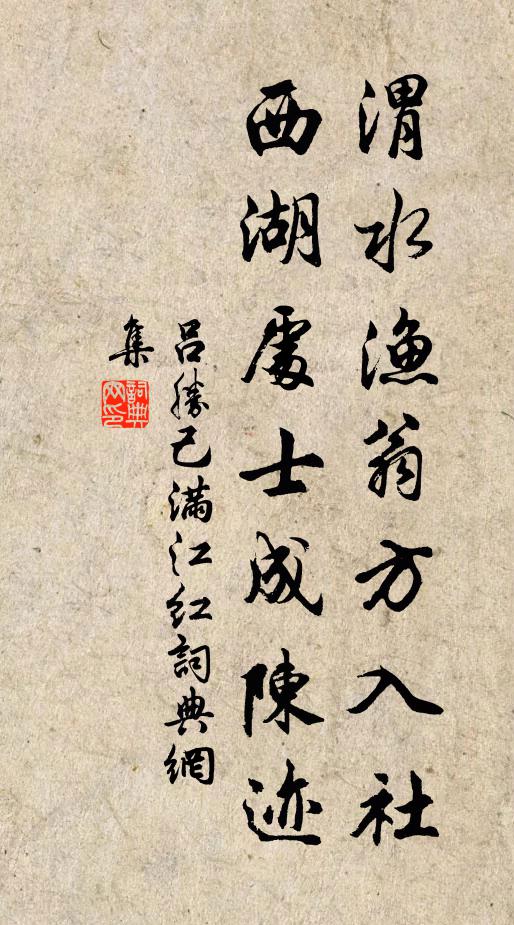 渭水漁翁方入社
西湖處士成陳迹
吕勝己滿江红詞典網
集
詞典
网印